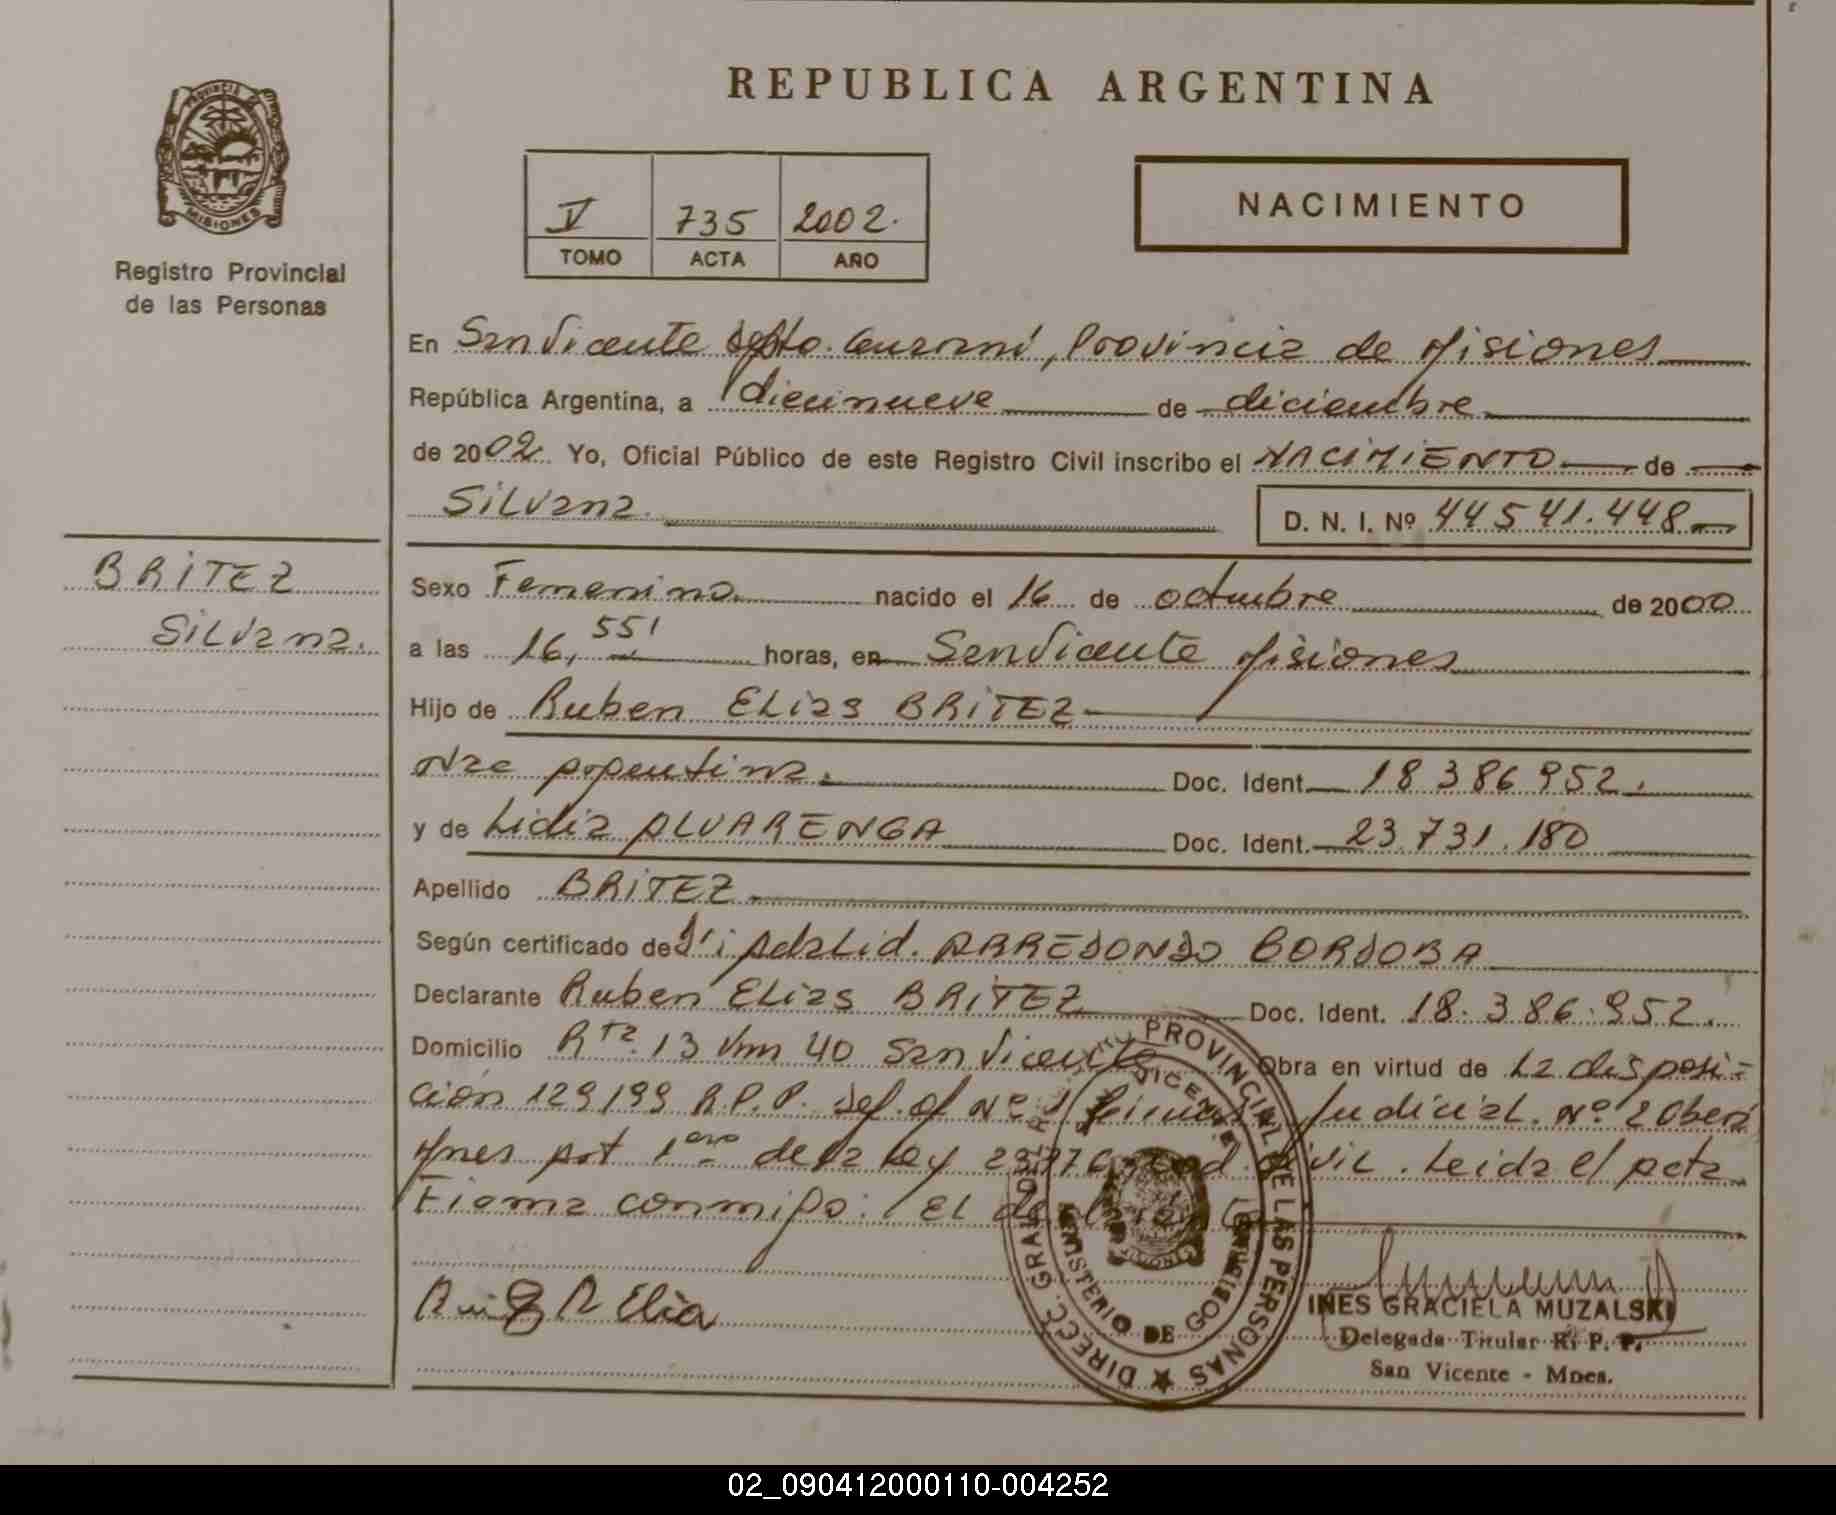 REPUBLICA ARGENTINA
PROVINCIA DE
MISIONES
Registro Provincial
de las Personas
V 735 2002.
TOMO ACTA AÑO
NACIMIENTO
En San Vicente Depto. Guaraní, Provincia de Misiones
República Argentina, a diecinueve de diciembre
de 2002. Yo, Oficial Público de este Registro Civil inscribo el NACIMIENTO de
Silvana. D. N. I. Nº 44541.448
BRITEZ
Silvana.
Sexo Femenino. nacido el 16 de octubre de 2000
a las 16, 55' horas, en San Vicente Misiones
Hijo de Ruben Elias BRITEZ
Nac Argentina. Doc. Ident. 18 386 952.
y de Lidia ALVARENGA Doc. Ident. 23.731.180
Apellido BRITEZ
Según certificado de Adalid. ARREDONDO CORDOBA
Declarante Ruben Elias BRITEZ Doc. Ident. 18.386.952.
Domicilio Rta. 13 Km 40 San Vicente Obra en virtud de La disposi-
ción 129/99 R.P.P. Def. of Nº 1 Judicial. Nº 2 Oberá
Mnes Art 1ero de la Ley Civil. Leida el acta
Firma conmigo: El
DIRECC. GRAL. DEL REGISTRO PROVINCIAL DE LAS PERSONAS
MINISTERIO DE GOBIERNO
VICENTE
MISIONES
INES GRACIELA MUZALSKI
Delegada Titular R. P. P.
San Vicente - Mnes.
02_090412000110-004252